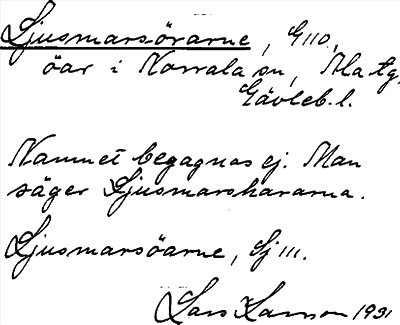 Ljusmarsörarne, G 110,
öar i Norrala sn, Ala tg,
Gävleb. l.
Namnet begagnas ej. Man
säger Ljusmarshararna.
Ljusmarsöarne, Sj 111.
Lars Larson 1931